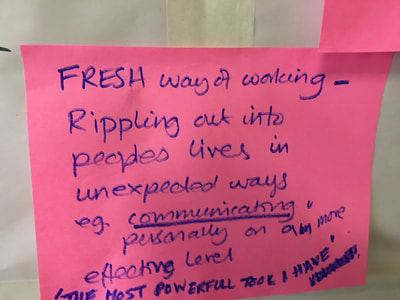 FRESH way of working -
Rippling out into
peoples lives in
unexpected ways
eg. communicating
personally on a more
effecting level
"THE MOST POWERFUL TOOK I HAVE"